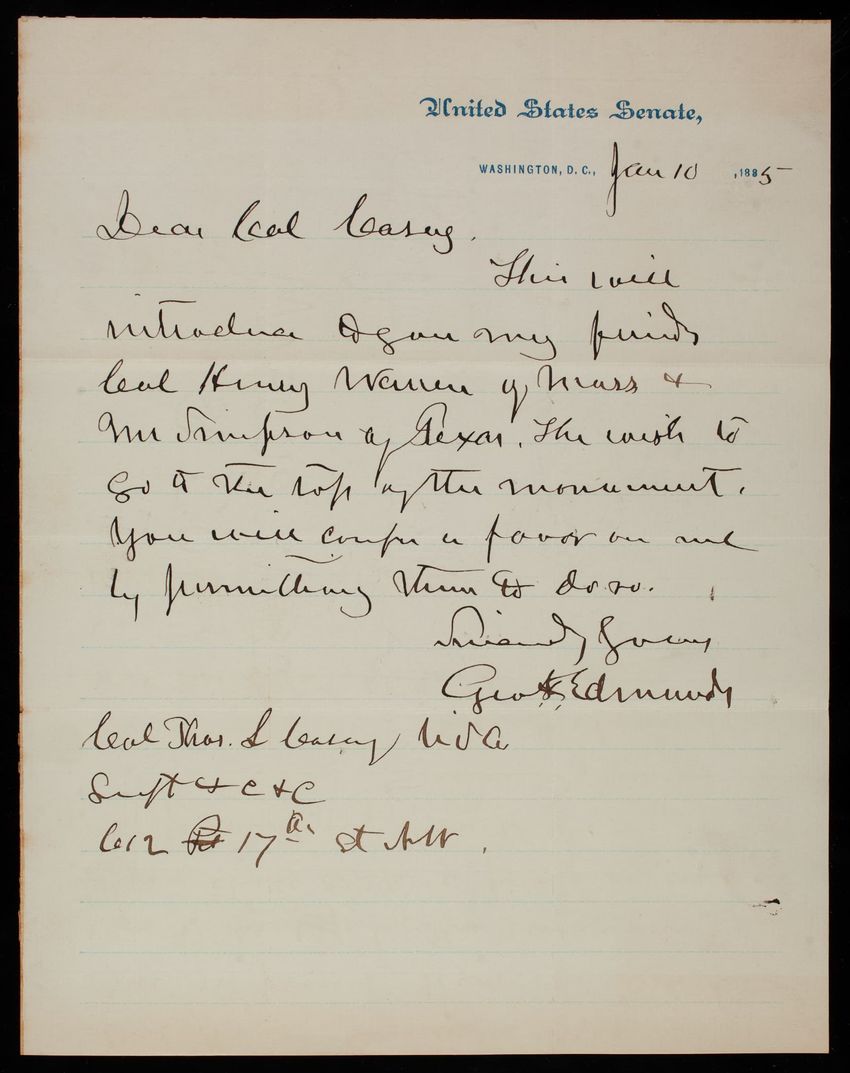 United States Senate,
WASHINGTON, D. C., Jan 10 , 1885
Dear Col Casey.
This will
introduce to you my friends
Col Henry Warren of Mass &
Mr Simpson of Texas. The wish to
go to the top of the monument.
You will confer a favor on me
by permitting them to do so.
Sincerely Yours
Geo F Edmunds
Col Thos. L Casey USA
&c &c
17th St NW.